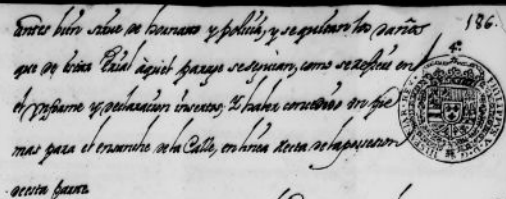 186.
antes bien sirve de hornato y policia, y se quitaran los daños
que de estar Erial aquel parage se seguian, como se refiere en
el Ynforme y declaracion insertos; Y haber concedido un pie
mas para el ensanche de la Calle, en linea recta de la posesion
de esta parte